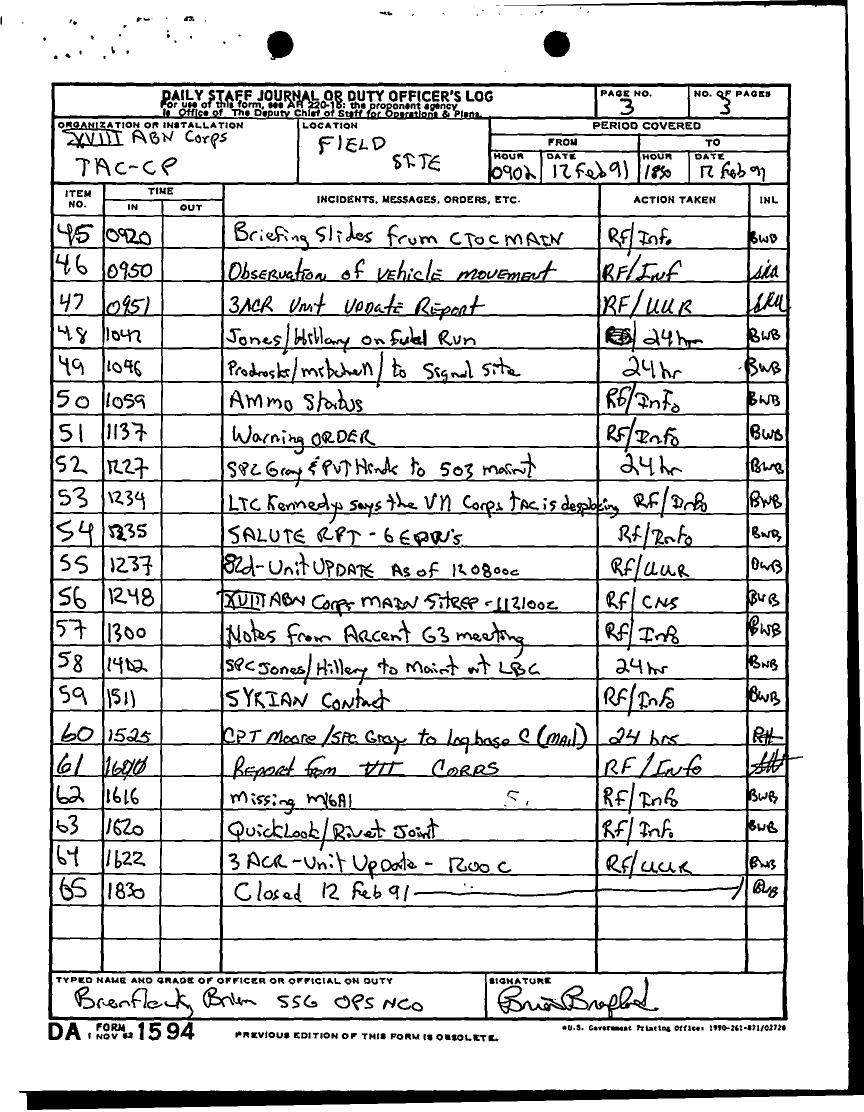 DAILY STAFF JOURNAL OR DUTY OFFICER'S LOG
For use of this form, see AR 220-15; the proponent agency
is Office of The Deputy Chief of Staff for Operations & Plans.
PAGE NO.
3
NO. OF PAGES
3
ORGANIZATION OR INSTALLATION
XVIII ABN Corps
TAC-CP
LOCATION
FIELD
SITE
PERIOD COVERED
FROM TO
HOUR DATE HOUR DATE
0902 12 Feb 91 1830 12 Feb 91
ITEM NO. TIME IN OUT INCIDENTS, MESSAGES, ORDERS, ETC. ACTION TAKEN INL
45 0920 Briefing Slides from CTOC MAIN RF/Info. BWB
46 0950 Observation of vehicle movement RF/Inf
47 0951 3ACR Unit Update Report RF/UUR
48 1047 Jones/Hillary on fuel Run 24 hr BWB
49 1046 /mitchell/to Signal Site 24 hr BWB
50 1059 Ammo Status RF/Info BWB
51 1137 Warning ORDER RF/Info BWB
52 1227 SPC Gray & PVT to 503 maint 24 hr BWB
53 1234 LTC Kennedy says the VII Corps TAC is desplacing RF/Info BWB
54 1235 SALUTE RPT - 6 EPW's RF/Info BWB
55 1237 82d-Unit UPDATE As of 120800c RF/UUR BWB
56 1248 XVIII ABN Corps MAIN SITREP - 112100c RF/CNS BWB
57 1300 Notes from Arcent G3 meeting RF/Info BWB
58 1402 SPC Jones/Hillery to Maint at LBC 24 hr BWB
59 1511 SYRIAN Contact RF/Info BWB
60 1525 CPT Moore/SPC Gray to Logbase C (mail) 24 hrs RH
61 Report from VII CORPS RF/Info
62 1616 missing M16A1 RF/Info BWB
63 1620 QuickLook/Rivet Joint RF/Info. BWB
64 1622 3 ACR - Unit Update - 1200 C RF/UUR BWB
65 1830 Closed 12 Feb 91 BWB
TYPED NAME AND GRADE OF OFFICER OR OFFICIAL ON DUTY
SSG OPS NCO
SIGNATURE
DA FORM 1 NOV 62 1594
PREVIOUS EDITION OF THIS FORM IS OBSOLETE.
*U.S. Government Printing Office: 1990-261-871/02728